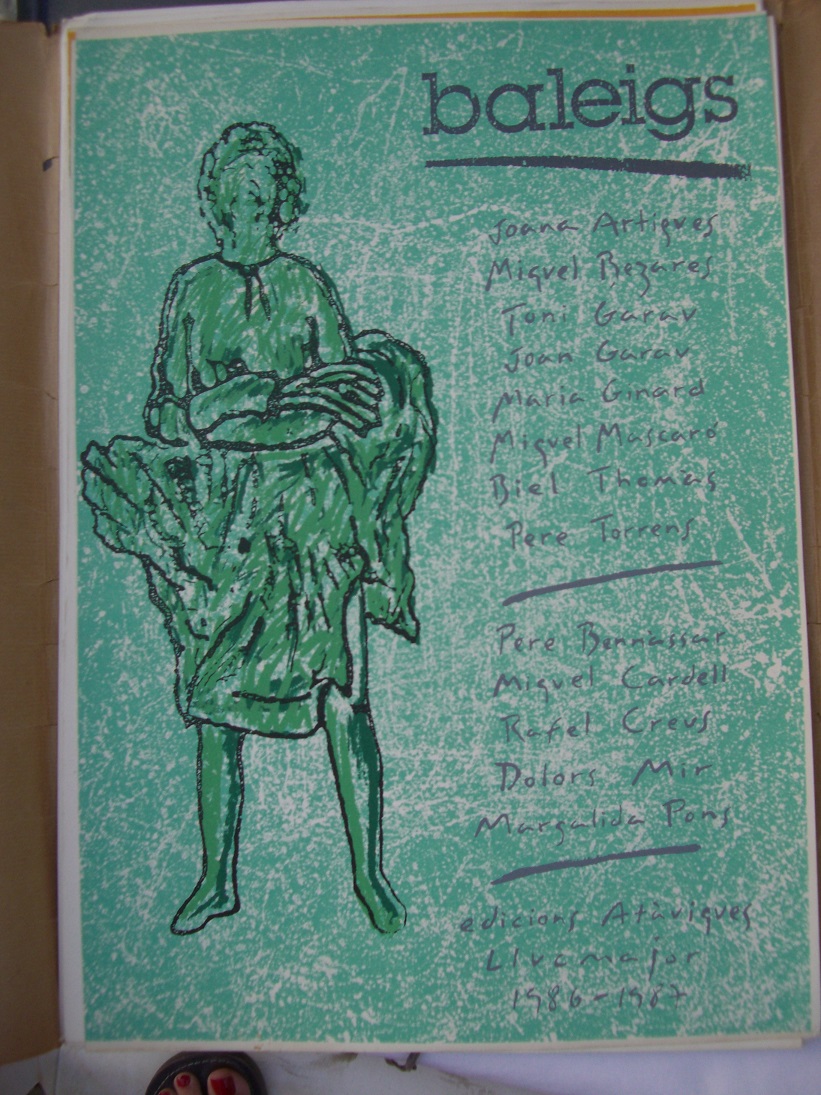 baleigs
Joana Artigues
Miquel Bezares
Toni Garau
Joan Garau
Maria Ginard
Miquel Mascaró
Biel Thomàs
Pere Torrens
Pere Bennassar
Miquel Cardell
Rafel Creus
Dolors Mir
Margalida Pons
edicions Atàviques
Llucmajor
1986-1987